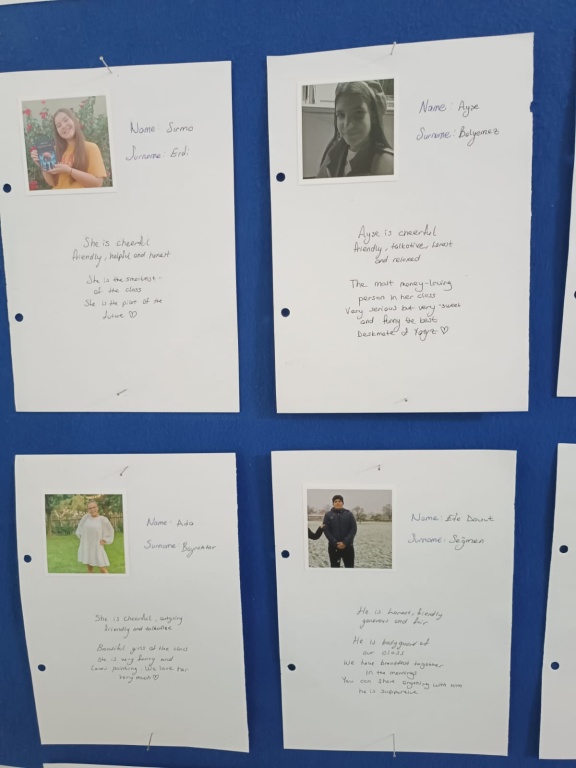 Name: Sırma
Surname: Erdi
She is cheerful
friendly, helpful and honest
She is the smartest
of the class
She is the pilot of the
future ♡
Name: Ayşe
Surname: Balyemez
Ayşe is cheerful
friendly, talkative, honest
and relaxed
The most money-loving
person in her class
Very serious but very sweet
and funny the best
Deskmate of Yağız ♡
Name: Ada
Surname: Bayraktar
She is cheerful, outgoing
friendly and talkative
Beautiful girls of the class
she is very funny and
loves painting. We love her
very much ♡
Name: Efe Davut
Surname: Seğmen
He is honest, friendly
generous and fair
He is bodyguard of
our class
We have breakfast together
in the mornings
You can share anything with him
He is supportive